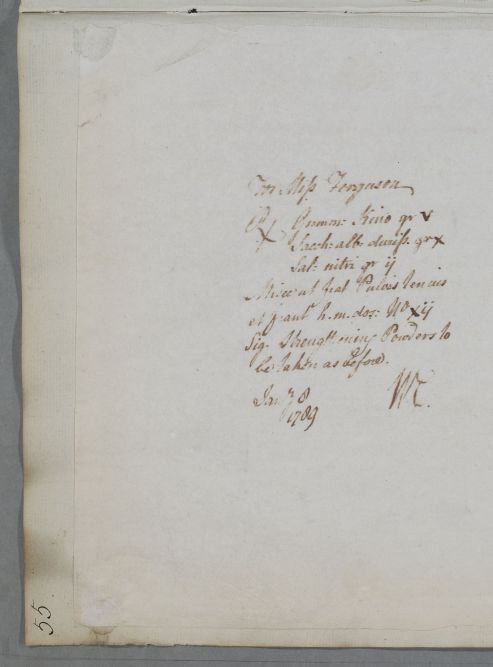 For Miss Ferguson
℞ Gummi: Kino gr v
Sacch: alb: duriss. gr x
Sal: nitri gr ij
Misce ut fiat Pulvis tenuis
et p: ant h. m. dos: No xij
Sig. Strengthening Powders to
be taken as before.
Jany 8
1789
55